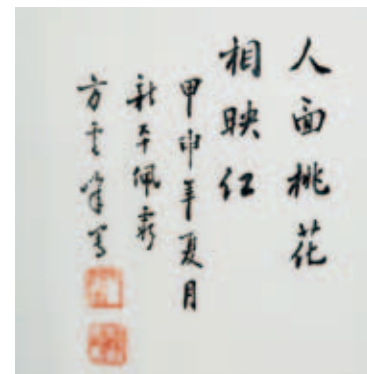 人面桃花
相映红
甲申年夏月
新平佩
方云峰写